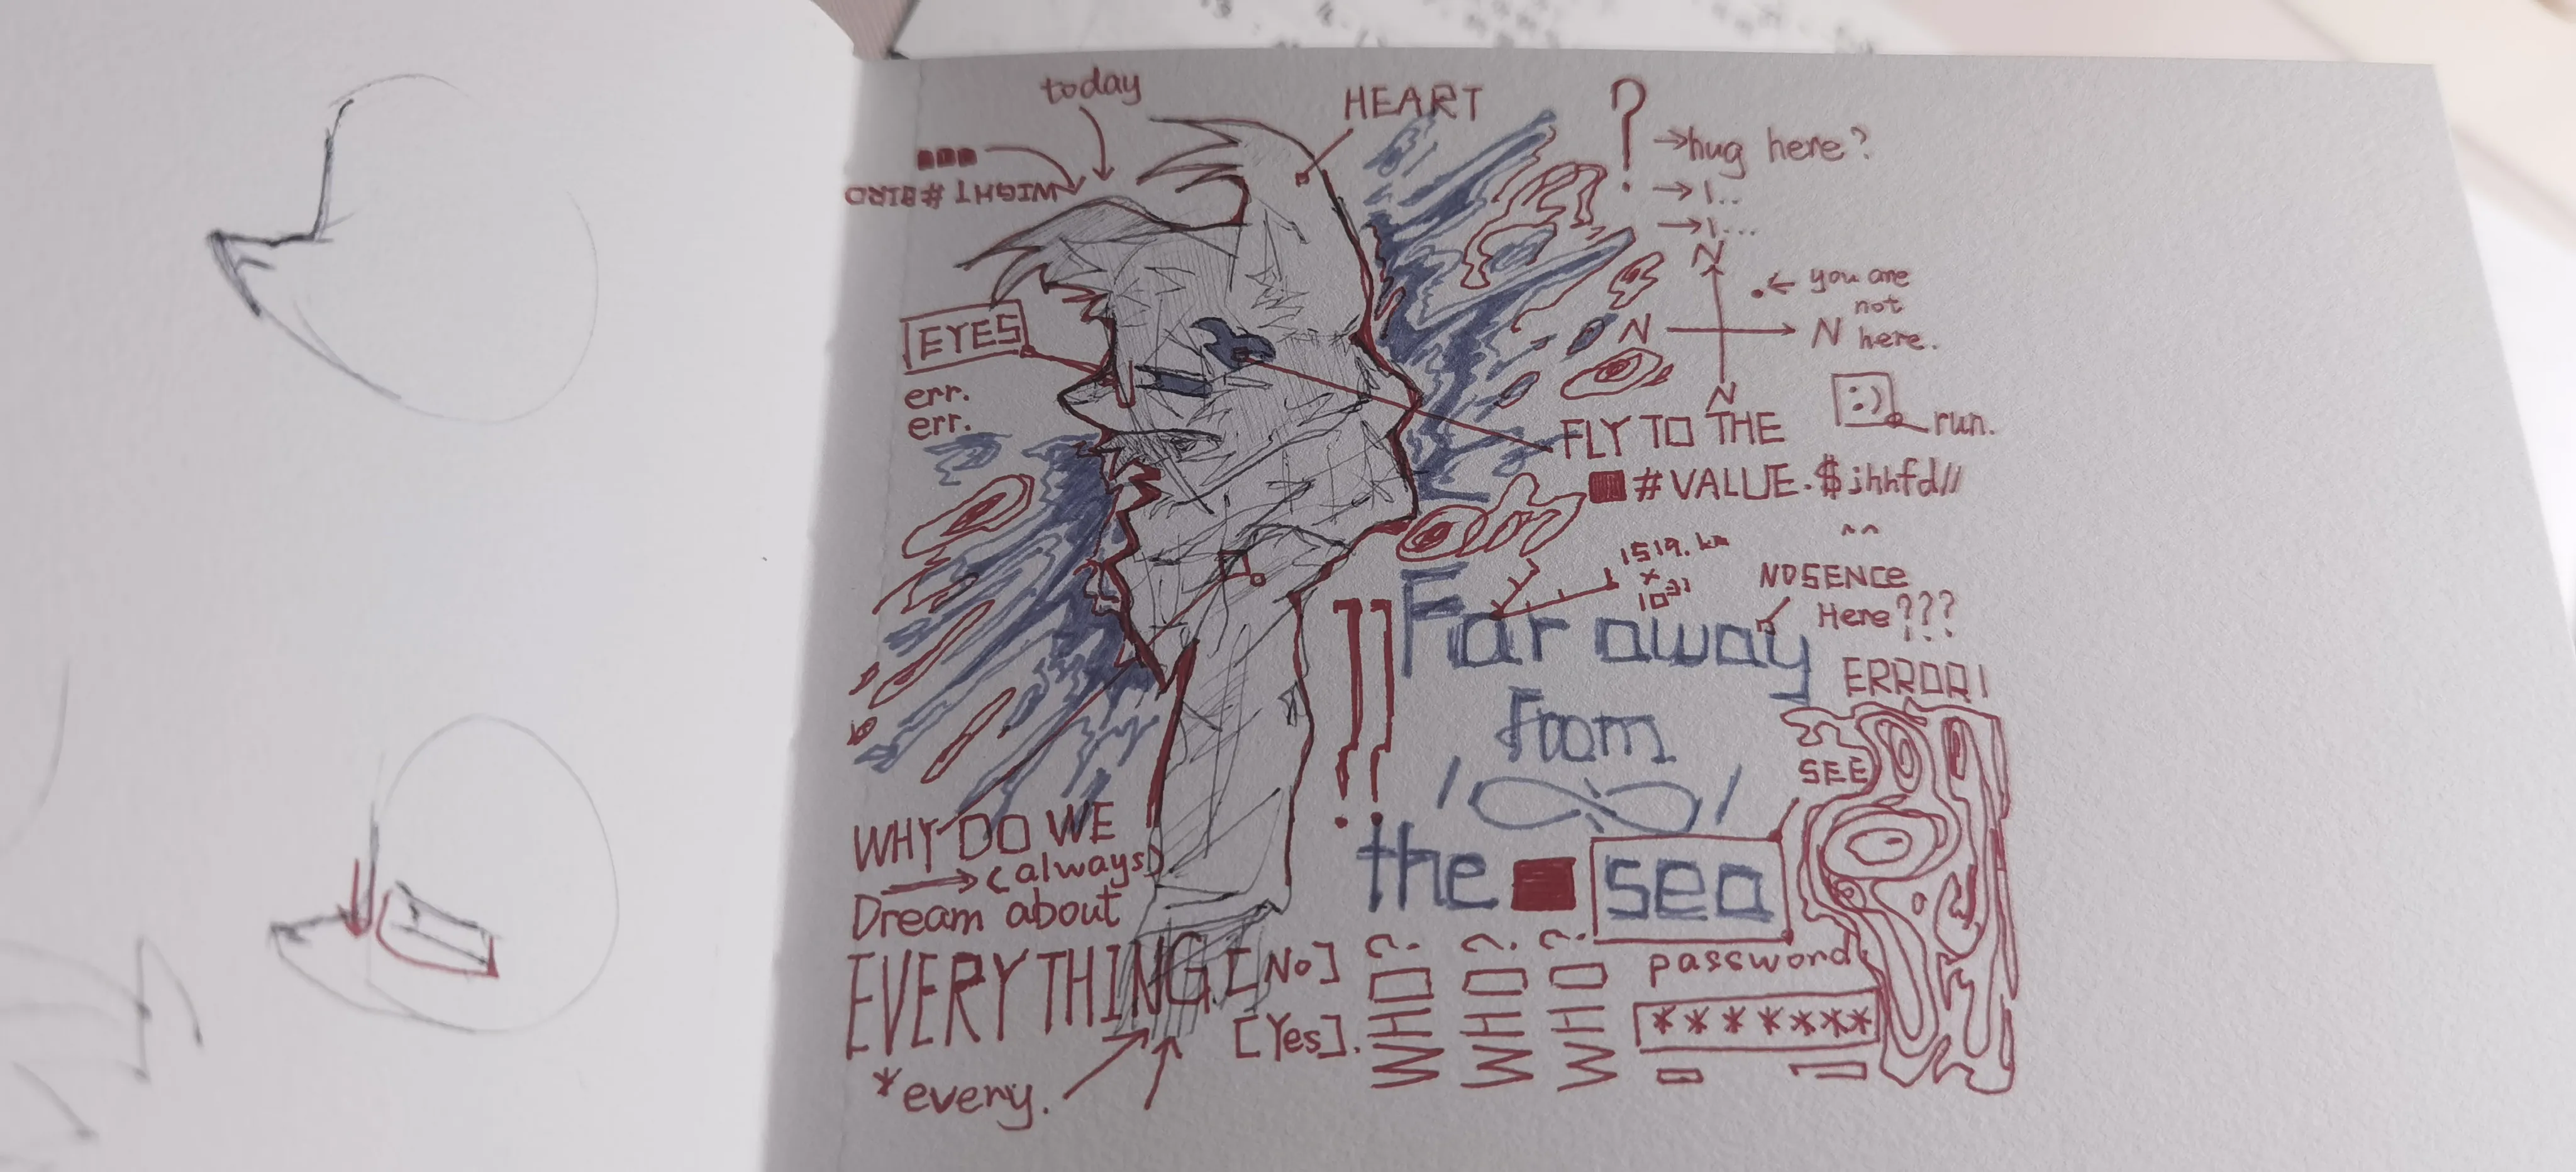 today
HEART
?
→hug here?
→I..
→I...
WIGHT #BIRD
N
you are
not
here.
N
N
N
EYES
err.
err.
:)
run.
FLY TO THE
#VALUE.$jhhfd//
^^
1519. km
×
10³¹
NOSENCE
Here???
!!
Far away
from
the
sea
ERROR!
SEE
WHY DO WE
→(always)
Dream about
EVERYTHING.
[No]
[Yes].
*every.
WHO?
WHO?
WHO?
password
*******